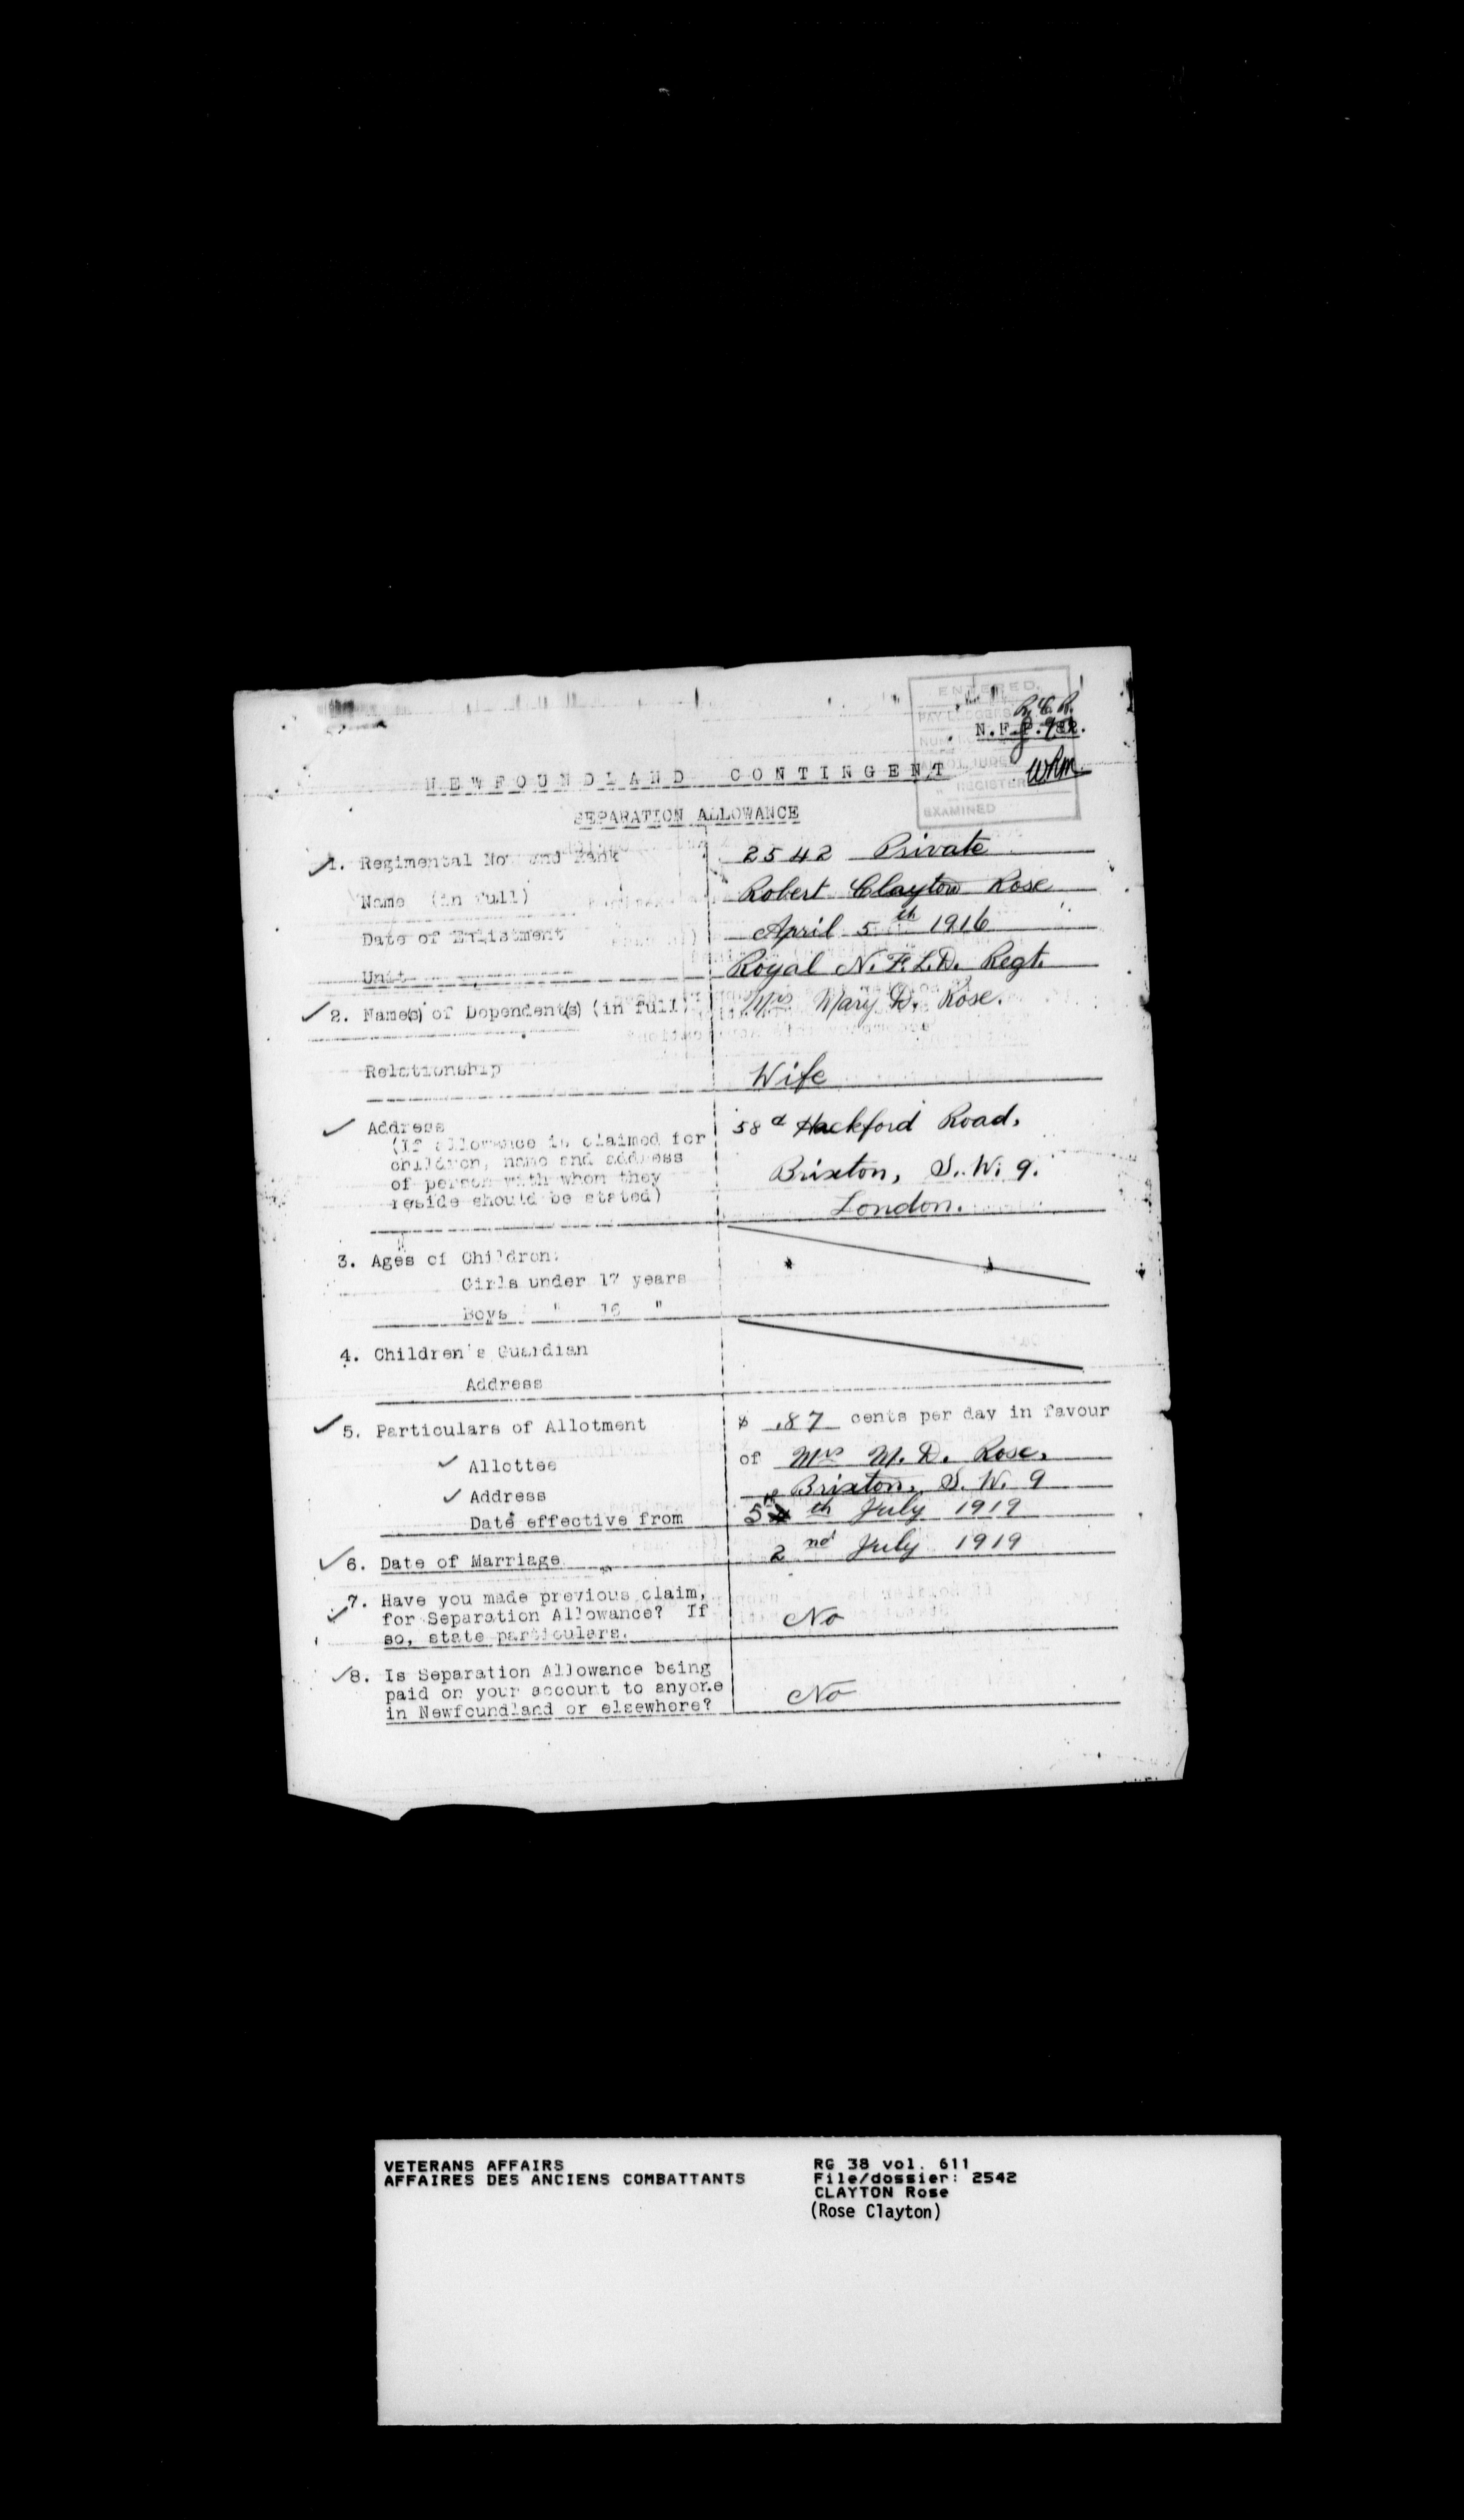 ENTERED.
PAY LEDGERS
R.C.R.
N.F.P.
REGISTER
WRM
EXAMINED
NEWFOUNDLAND CONTINGENT
SEPARATION ALLOWANCE
1. Regimental No. and Rank 2542 Private
Name (in full) Robert Clayton Rose
Date of Enlistment April 5th 1916
Unit Royal N.F.L.D. Regt.
2. Name(s) of Dependent(s) (in full) Mrs Mary D. Rose.
Relationship Wife
Address 58d Hackford Road,
(If allowance is claimed for
children, name and address Brixton, S.W. 9.
of person with whom they
reside should be stated) London.
3. Ages of Children:
Girls under 17 years
Boys " 16 "
4. Children's Guardian
Address
5. Particulars of Allotment $ .87 cents per day in favour
Allottee of Mrs M. D. Rose.
Address Brixton, S.W. 9
Date effective from 5th July 1919
6. Date of Marriage 2nd July 1919
7. Have you made previous claim,
for Separation Allowance? If No
so, state particulars.
8. Is Separation Allowance being
paid on your account to anyone No
in Newfoundland or elsewhere?
VETERANS AFFAIRS RG 38 vol. 611
AFFAIRES DES ANCIENS COMBATTANTS File/dossier: 2542
CLAYTON Rose
(Rose Clayton)